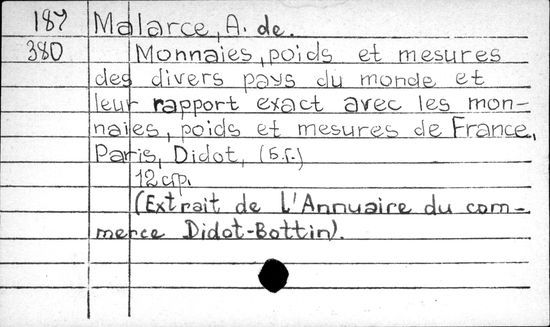 187 Malarce, A. de.
380 Monnaies, poids et mesures
des divers pays du monde et
leur rapport exact avec les mon-
naies, poids et mesures de France,
Paris, Didot, (s.f.)
12 cp.
(Extrait de l'Annuaire du com-
merce Didot-Bottin).